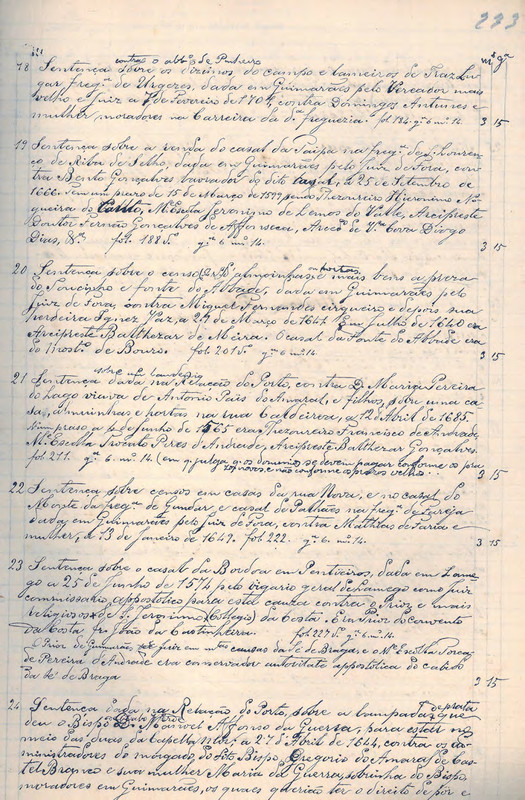 223
mç. gª.
contra o abb.e de Pinheiro
18 Sentença sobre os dizimos do campo e lameiros de Traz Lu-
gar, freg.ª de Urgezes, dada em Guimarães pelo Vereador mais
velho e Juiz a 7 de Fevereiro de 1704, contra Domingos Antunes e
mulher, moradores na Carreira da d.ª freguezia. fol. 184. gª 6. mº 14. 3 15
19 Sentença sobre a renda do casal da Taipa na freg.ª de S. Louren-
ço de Riba de Selho, dada em Guimarães pelo Juiz de Fora, con-
tra Bento Gonçalves lavrador do dito casal, a 25 de Setembro de
1666. Tem um prazo de 15 de Março de 1599 sendo Thezoureiro Hieronimo No-
gueira do Canto, M. Escola Jeronimo de Lemos do Valle, Arcipreste
Doutor Fernão Gonçalves de Affonseca, Arced. de Vª Cova Diogo
Dias, &.ª fol. 188 gª 6. mº 14. 3 15
20 Sentença sobre o censo almoinhas ou hortas e mais bens a preza
do Soucinho e fonte do Abbade, dada em Guimarães pelo
Juiz de Fora, contra Miguel Fernandes cirgueiro e depois sua
herdeira Ignez Vaz, a 24 de Março de 1647. Em Julho de 1640 era
Arcipreste Balthezar de Meira. O casal da Fonte do Abbade era
do Most.º de Bouro. fol. 201 gª 6. mº 14. 3 15
21 Sentença dada na Relação do Porto, contra D. Marize Pereira
do Lago viuva de Antonio Paes do Amaral e filhos, sobre uma ca-
sa, almuinhas e portas na rua Caldeiroa, a 12 de Abril de 1685.
Tem praso a de Junho de 1565 era Thezoureiro Francisco de Andrade,
M.e Escolla Peres d'Andrade, Arcipreste Balthezar Gonçalves.
fol. 211. gª 6. mº 14. (em q. julga q. os dominios se devem pagar conforme os pra-
zos novos e não conforme os prazos velhos. 3 15
22 Sentença sobre censos em casas da rua Nova, e no casal do
Monte da freg.ª de Gondar, e casal de Talhães na freg.ª da Igreja
dada em Guimarães pelo Juiz de Fora, contra Mathias de Faria e
mulher, a 13 de Janeiro de 1647. fol. 222. gª 6. mº 14. 3 15
23 Sentença sobre o casal da Bordoa em Pentieiros, dada em Lame-
go a 25 de Junho de 1574 pelo Vigario geral de Lamego como juiz
commissario appostolico para esta cauza contra o Prior e mais
religiosos de S. Jeronimo (Collegio) da Costa. Era Prior do convento
da Costa Fr. João da Castinheira. fol. 227 gª 6. mº 14.
O Prior de Guimarães juiz em mtas causas da Sé de Braga e o M.e Escolla
de Pereira d'Andrade era conservador autoritate appostolica do cabido
da Sé de Braga 3 15
24 Sentença dada na Relação do Porto, sobre a lampada de prata que
deu o Bispo de Cabo Verde D. Manoel Affonso da Guerra, para estar no
meio das duas da Capella mór, a 2 d'Abril de 1644, contra os ad-
ministradores do morgado do dito Bispo, Gregorio do Amaral de Cas-
tel-Branco e sua mulher Maria da Guerra, sobrinha do Bispo
moradores em Guimarães, os quaes querião ter o direito de pôr e